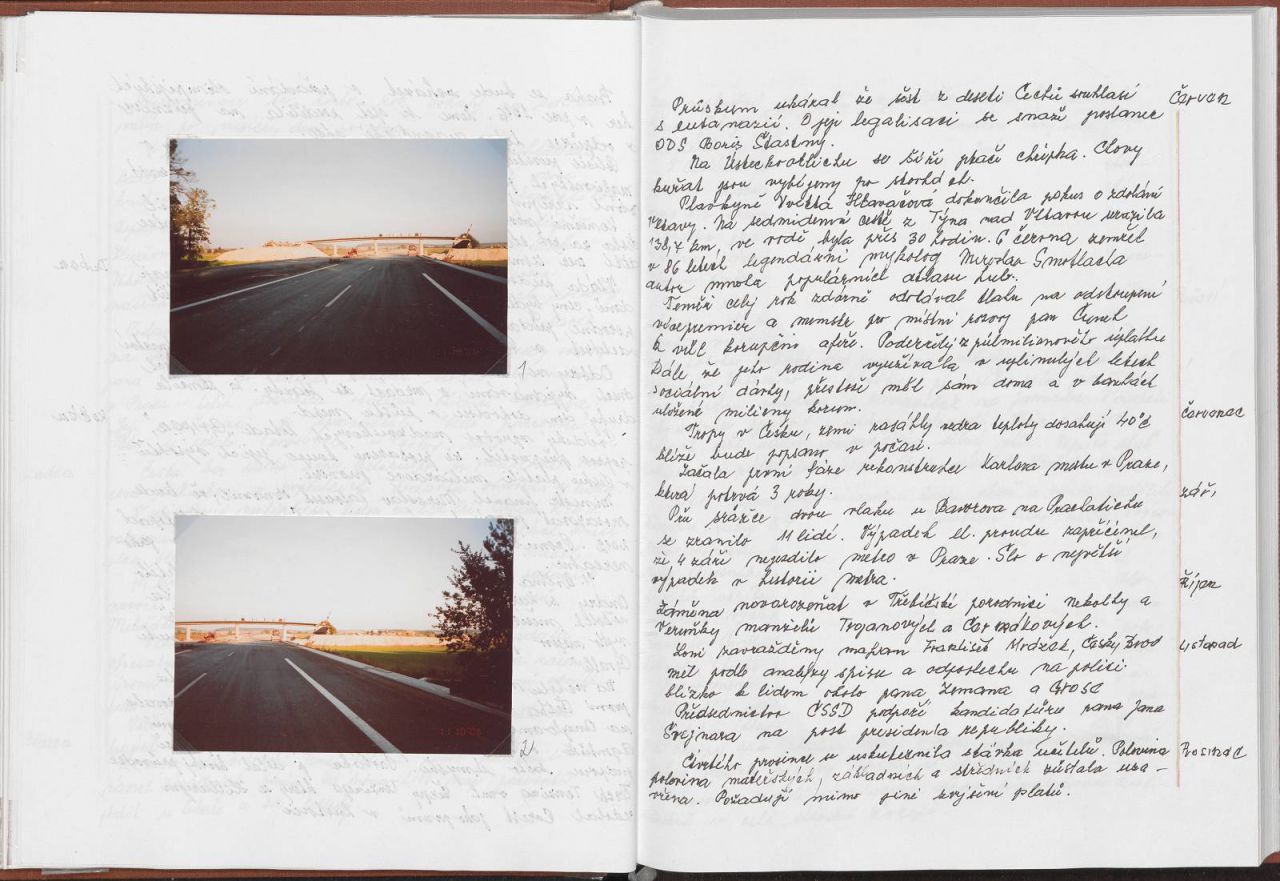 1
11 10 '06
2
Průzkum ukázal že šest z deseti Čechů souhlasí
s eutanazií. O její legalisaci se snaží poslanec
ODS Boris Šťastný.
Na Ústeckoorlicku se šíří ptačí chřipka. Chovy
kuřat jsou vybíjeny po stovkách.
Plavkyně Yvetta Hlaváčová dokončila pokus o zdolání
Vltavy. Na sedmidenní cestě z Týna nad Vltavou urazila
138,4 km, ve vodě byla přes 30 hodin. 6 června zemřel
v 86 letech legendární mykolog Miroslav Smotlacha
autor mnoha populárních atlasů hub.
Téměř celý rok zdárně odolával tlaku na odstoupení
vicepremier a ministr pro místní rozvoj pan Čunek
k vůli korupční aféře. Podezřelý z půlmilionového úplatku
Dále že jeho rodina využívala, v uplinulých letech
sociální dávky, přestože měl sám doma a v bankách
uložené miliony korun.
Tropy v Česku, zemi zasáhly vedra teploty dosahují 40°C
blíže bude popsáno v počasí.
Začala první fáze rekonstrukce Karlova mostu v Praze,
která potrvá 3 roky.
Při srážce dvou vlaku u Bavorova na Prachaticku
se zranilo 11 lidí. Výpadek el. proudu zapříčinil,
že 4 září nejezdilo metro v Praze. Šlo o největší
výpadek v historii metra.
Záměna novorozeňat v Třebíčské porodnici nikolky a
Verunky manželů Trojanových a Čermákových.
Loni zavražděný mafian František Mrázek, Český Brod
měl podle analýzy spisu a odposlechu na policii
blízko k lidem okolo pana Zemana a Grose
Předsednictvo ČSSD podpoří kandidaturu pana Jana
Švejnara na post presidenta republiky.
Čtvrtého prosince se uskutečnila stávka učitelů. Polovina
polovina mateřských, základních a středních zůstala uza-
vřena. Požadují mimo jiné zvýšení platů.
Červen
červenec
září
Říjen
Listopad
Prosinec